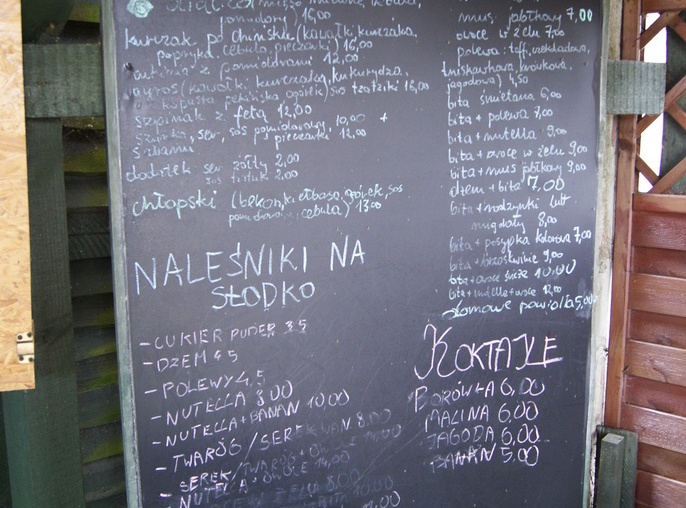 pomidory) 16,00
kurczak po chińsku (kawałki kurczaka,
papryka, cebula, pieczarki) 16,00
z pomidorami 12,00
gyros (kawałki kurczaka, kukurydza,
kapusta pekińska, ogórek) sos tzatziki 16,00
szpinak z fetą 12,00
szynka, ser, sos pomidorowy 10,00
z pieczarkami 12,00
dodatek ser żółty 2,00
sos 2,00
chłopski (bekon, kiełbasa, ogórek, sos
pomidorowy, cebula) 13,00
NALEŚNIKI NA
SŁODKO
- CUKIER PUDER 3,5
- DŻEM 4,5
- POLEWY 4,5
- NUTELLA 8,00
- NUTELLA + BANAN 10,00
- TWARÓG / SEREK WAN 8,00
- SEREK / TWARÓG +
- NUTELLA + OWOCE 14,00
mus jabłkowy 7,00
owoce w żelu 7,00
polewa: toff, czekoladowa,
truskawkowa, krówkowa,
jagodowa) 4,50
bita śmietana 6,00
bita + polewa 7,00
bita + nutella 9,00
bita + owoce w żelu 9,00
bita + mus jabłkowy 9,00
dżem + bita 7,00
bita + rodzynki lub
migdały 8,00
bita + posypka kolorowa 7,00
bita + brzoskwinie 9,00
bita + owoce świeże 10,00
bita + nutella + owoce 12,00
domowe powidła 5,00
KOKTAJLE
BORÓWKA 6,00
MALINA 6,00
JAGODA 6,00
BANAN 5,00